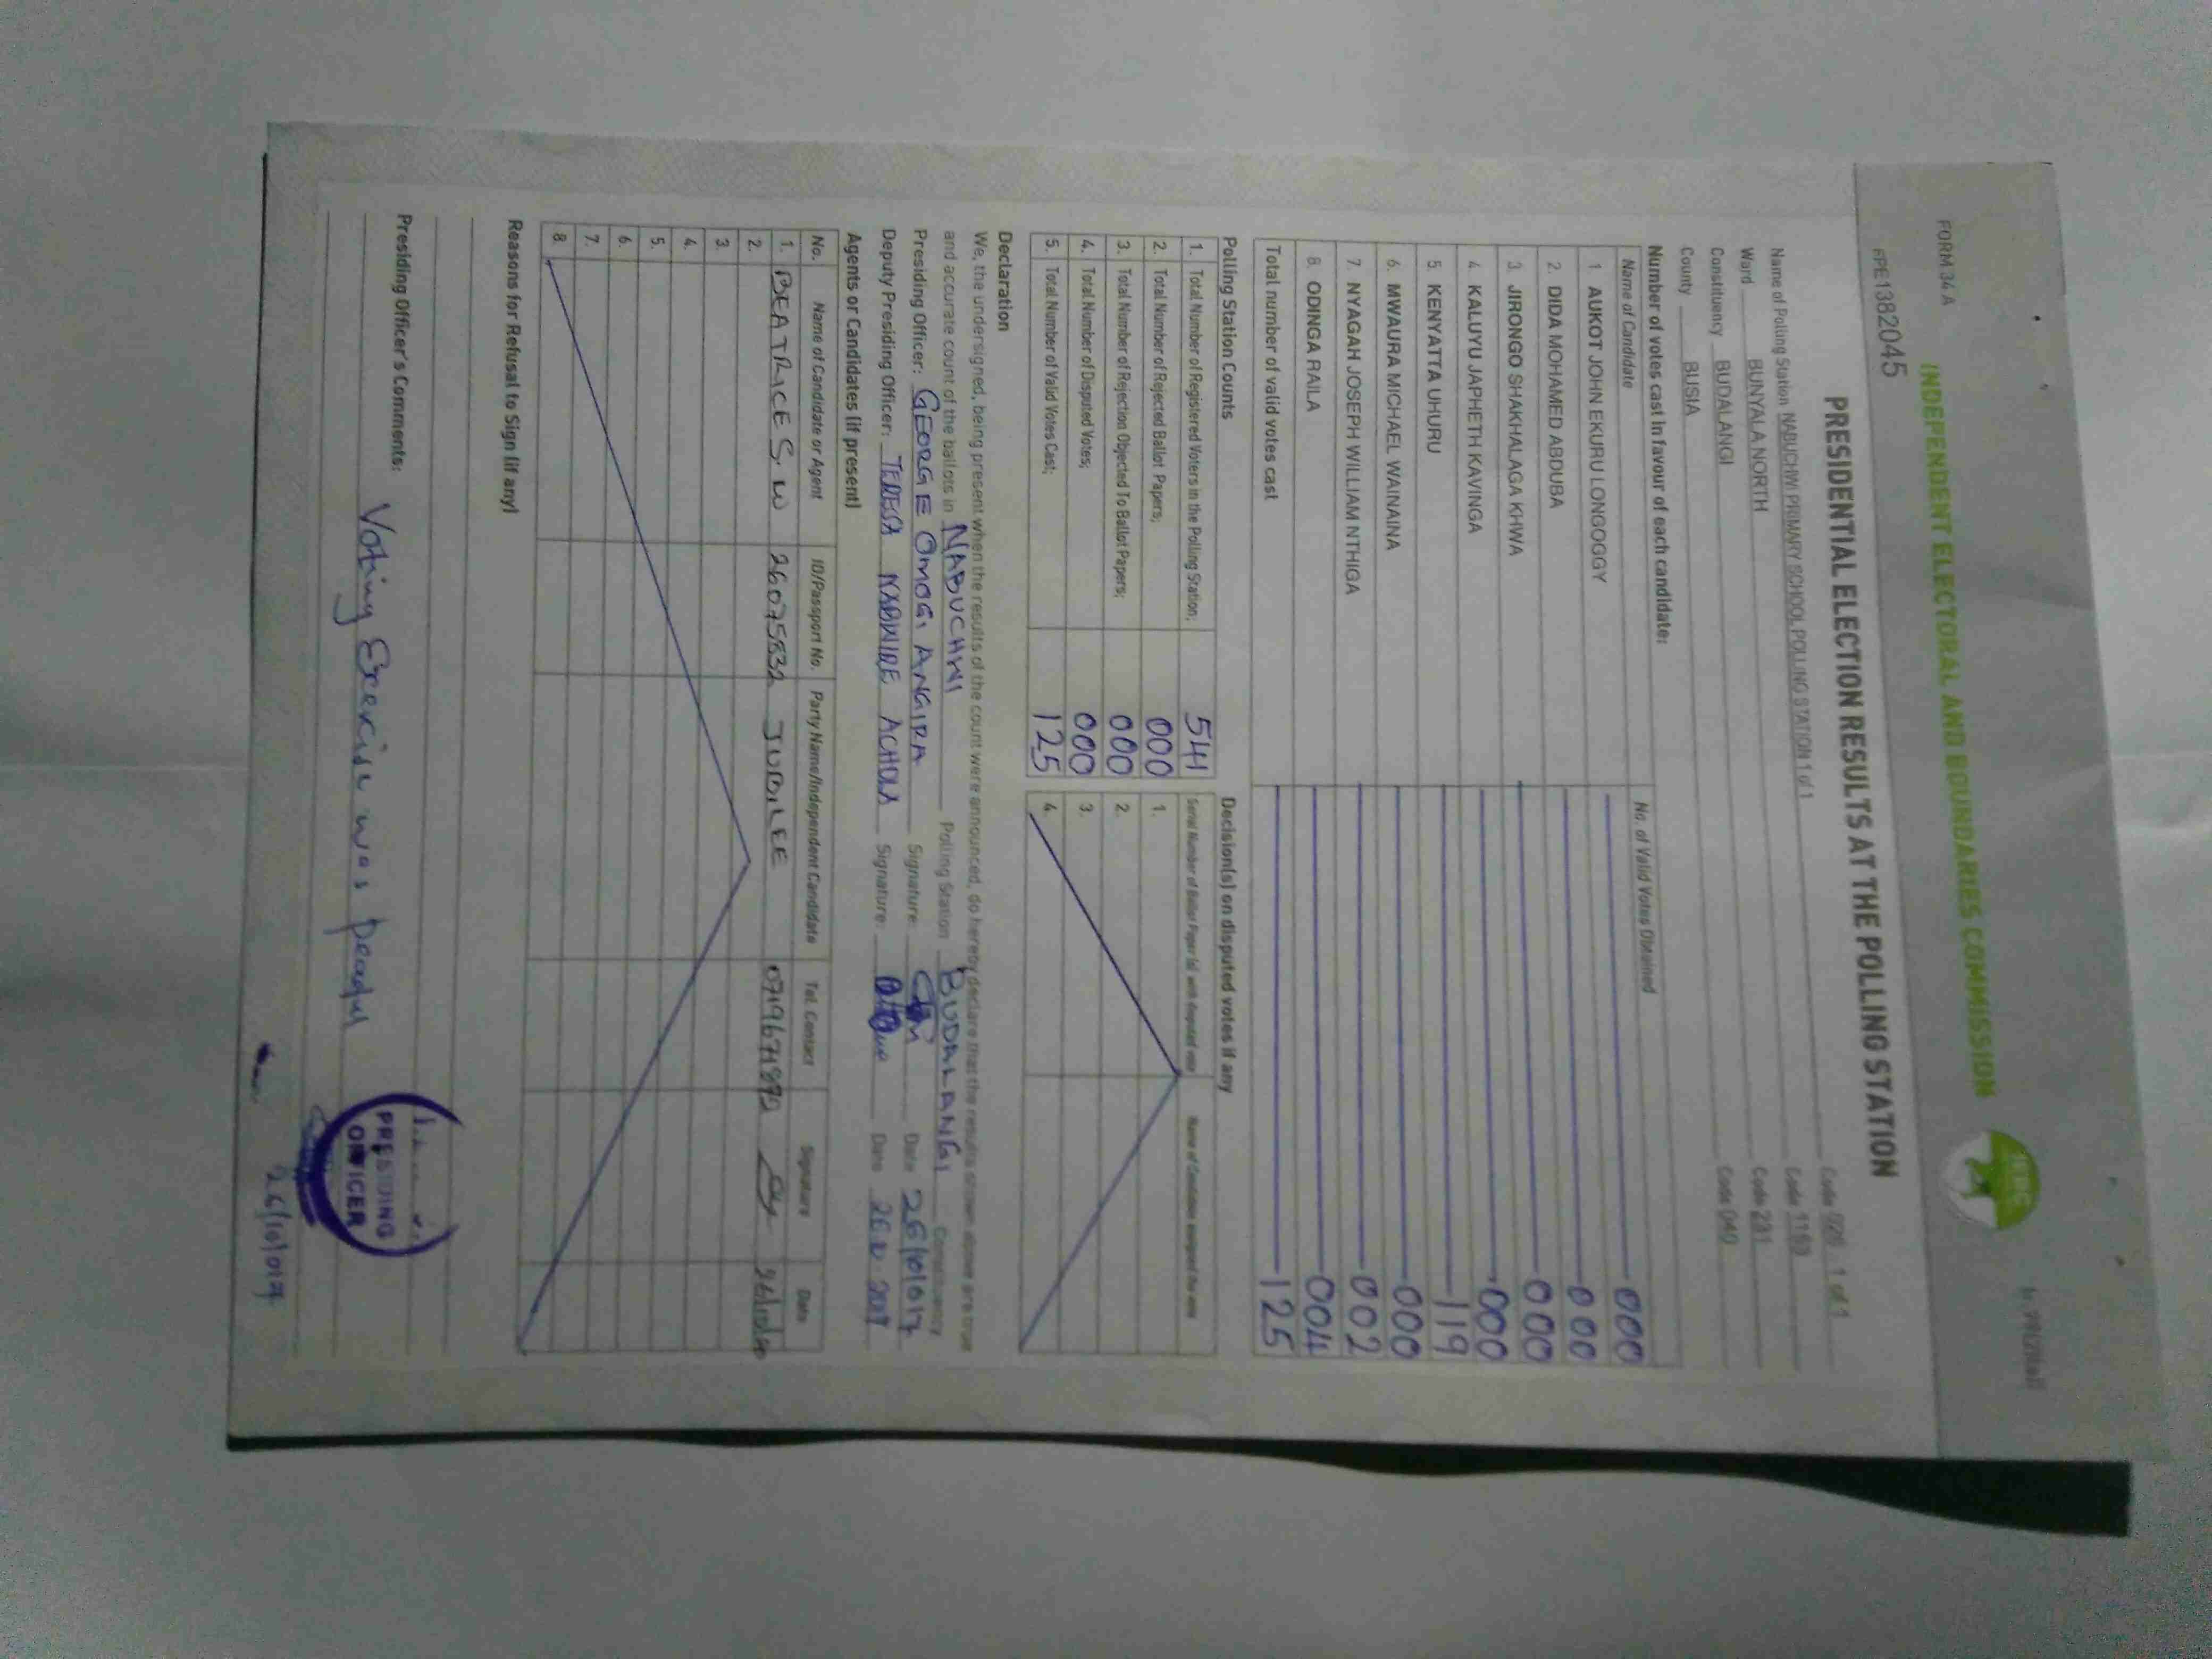 FORM 34 A
INDEPENDENT ELECTORAL AND BOUNDARIES COMMISSION
IEBC
FPE1382045
PRESIDENTIAL ELECTION RESULTS AT THE POLLING STATION
Name of Polling Station NABUCHWI PRIMARY SCHOOL POLLING STATION 1 of 1 Code 1 of 1
Ward BUNYALA NORTH Code 1153
Constituency BUDALANGI Code 231
County BUSIA Code 040
Number of votes cast in favour of each candidate:
Name of Candidate No. of Valid Votes Obtained
1 AUKOT JOHN EKURU LONGOGGY 000
2. DIDA MOHAMED ABDUBA 000
3. JIRONGO SHAKHALAGA KHWA 000
4. KALUYU JAPHETH KAVINGA 000
5. KENYATTA UHURU 119
6. MWAURA MICHAEL WAINAINA 000
7. NYAGAH JOSEPH WILLIAM NTHIGA 002
8. ODINGA RAILA 004
Total number of valid votes cast 125
Polling Station Counts
1. Total Number of Registered Voters in the Polling Station; 541
2. Total Number of Rejected Ballot Papers; 000
3. Total Number of Rejection Objected To Ballot Papers; 000
4. Total Number of Disputed Votes; 000
5. Total Number of Valid Votes Cast; 125
Decision(s) on disputed votes if any
Serial Number of Ballot Paper (s) with disputed vote Name of Candidate assigned the vote
1.
2.
3.
4.
Declaration
We, the undersigned, being present when the results of the count were announced, do hereby declare that the results shown above are true
and accurate count of the ballots in NABUCHWI Polling Station BUDALANGI Constituency
Presiding Officer: GEORGE OMOGI ANGIRA Signature: Date 26/10/017
Deputy Presiding Officer: ACHOLA Signature: Date
Agents or Candidates (if present)
No. Name of Candidate or Agent ID/Passport No. Party Name/Independent Candidate Tel. Contact Signature Date
1. BEATRICE S. W 26075832 JUBILEE
2.
3.
4.
5.
6.
7.
8.
Reasons for Refusal to Sign (if any)
Presiding Officer's Comments:
Voting Exercise was
PRESIDING
OFFICER